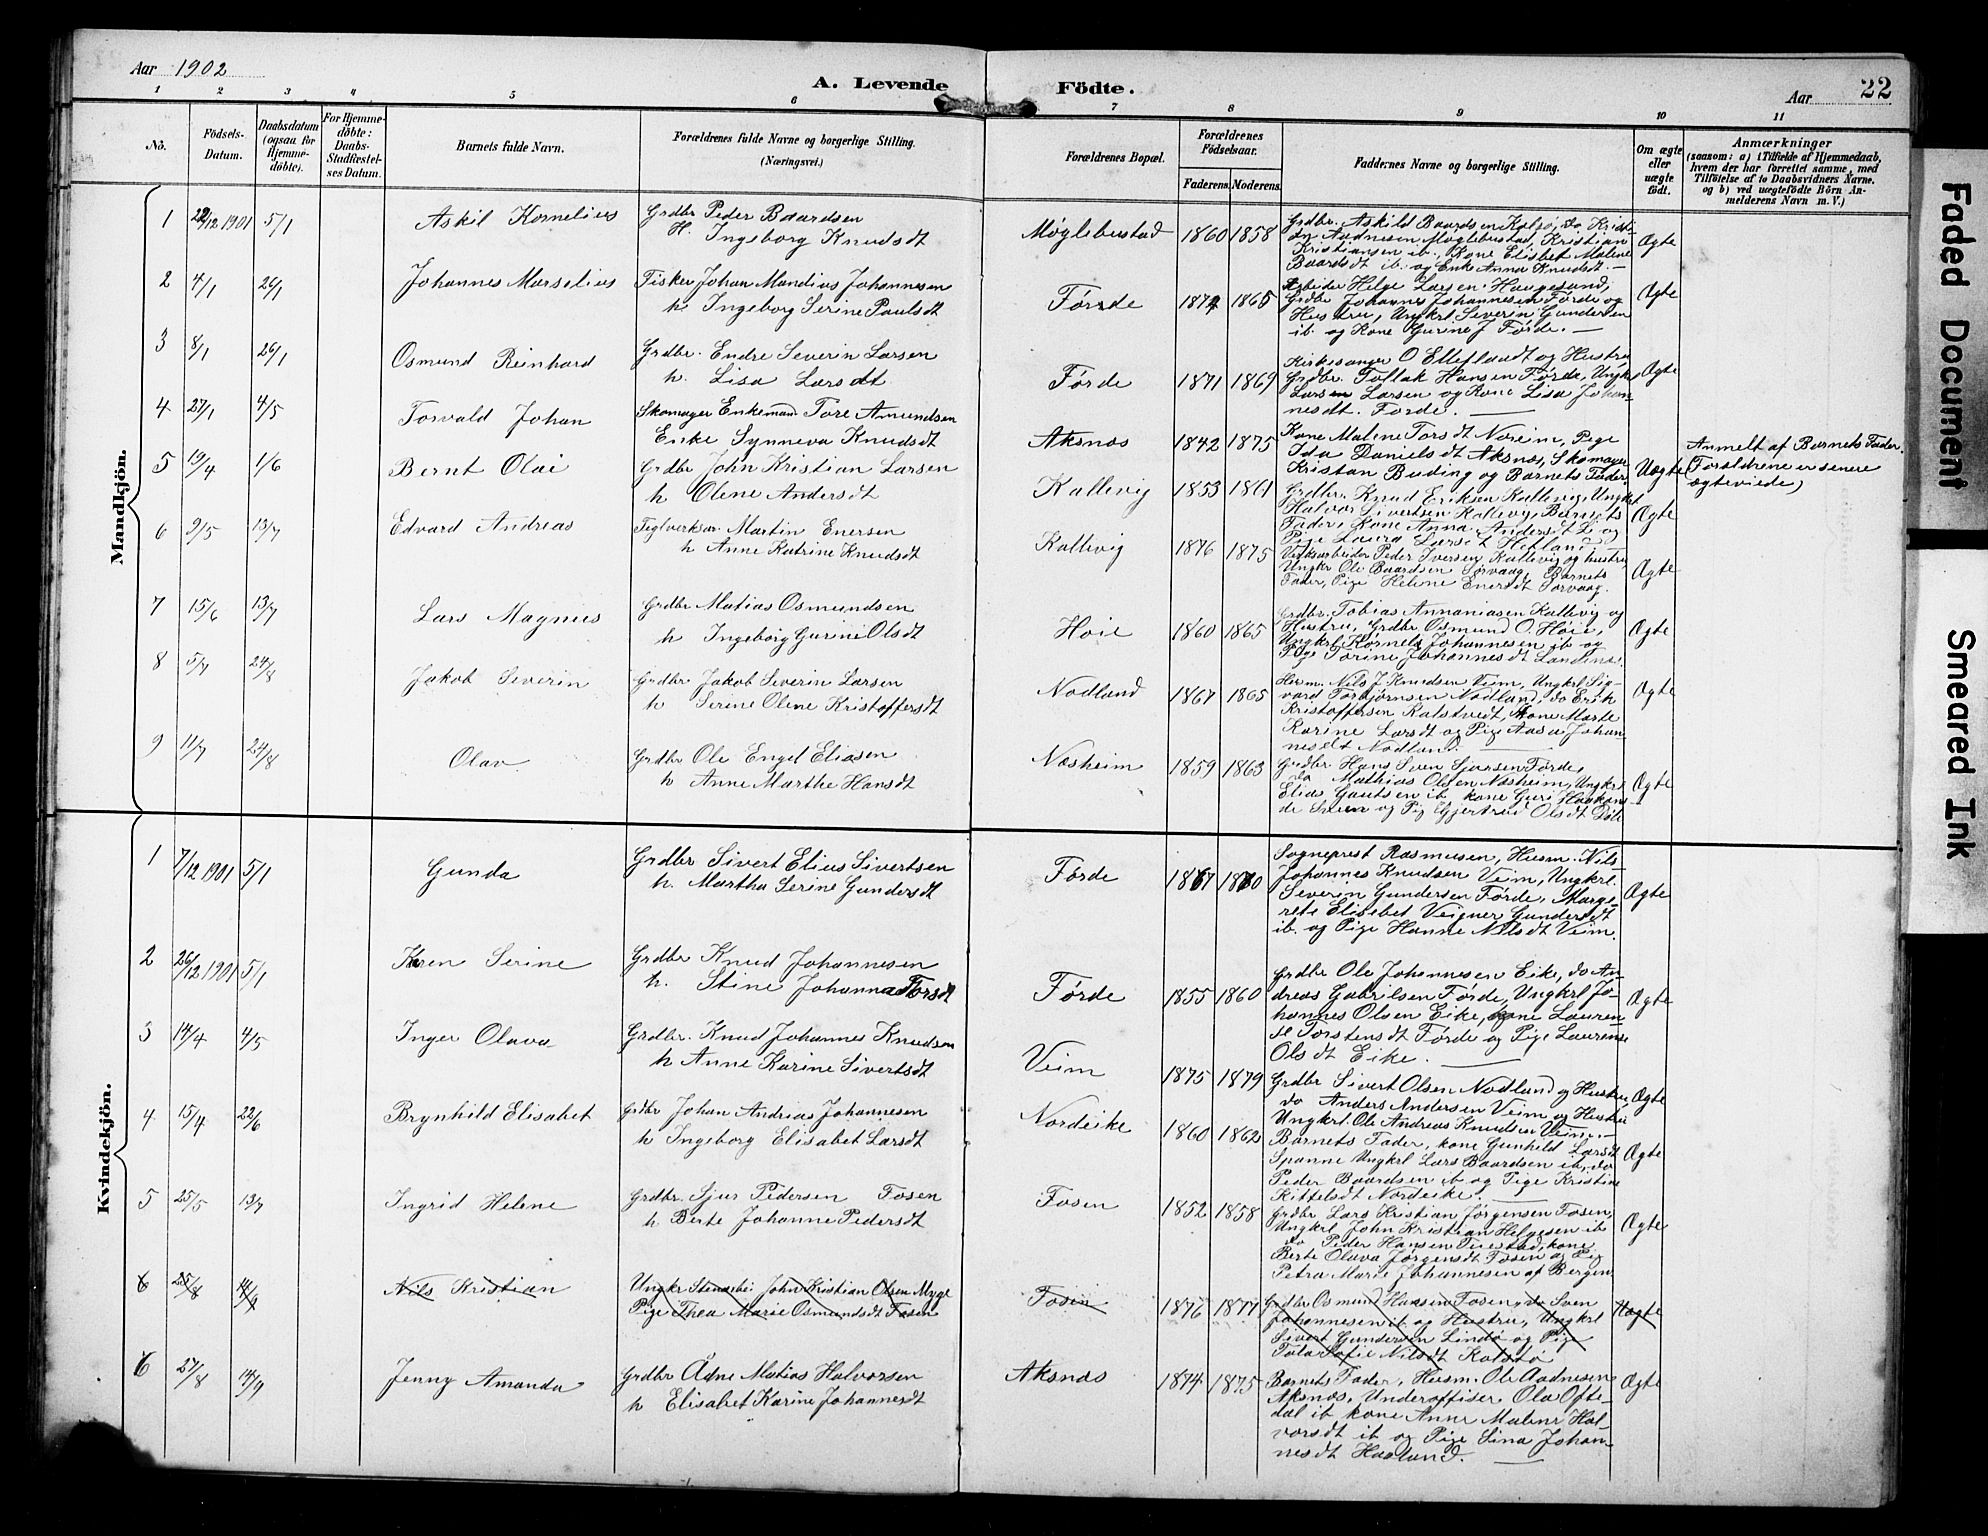 Aar 1902
A. Levende Födte.
Aar 22
1 2 3 4 5 6 7 8 9 10 11
No.
Födsels-Datum.
Daabsdatum (ogsaa for Hjemmedøbte).
For Hjemmedøbte: Daabs-Stadfæstelses Datum.
Barnets fulde Navn.
Forældrenes fulde Navne og borgerlige Stilling. (Næringsvei.)
Forældrenes Bopæl.
Forældrenes Födselsaar.
Faderens. Moderens.
Faddernes Navne og borgerlige Stilling.
Om ægte eller uægte født.
Anmærkninger
(saasom: a) i Tilfælde af Hjemmedaab, hvem der har forrettet samme, med Tilföielse af to Daabsvidners Navne, og b) ved uægtefödte Börn Anmelderens Navn m. V.)
Mandkjön.
1 22/12 1901 5/1 Askil Kornelius Grdbr Peder Baardsen
H. Ingeborg Knudsdt Møglebustad 1860 1858 Ægte
Grdbr. Askild Baardsen Kalsø, do Kristian Audnesen Møglebustad, Kristian
Kristiansen ib., Kone Elisbet Malene
Baardsdt ib. og Enke Anna Knudsdt.
2 4/1 26/1 Johannes Marselius Fisker Johan Mandius Johannesen
h. Ingeborg Serine Paulsdt Førde 1874 1865 Ægte
Arbeider Helge Larsen Haugesund,
Grdbr Johannes Johannesen Førde og
Hustru, Ungkrl. Severin Gundersen
ib. og Kone Gurine J Førde.
3 8/1 26/1 Osmund Reinhard Grdbr. Endre Severin Larsen
h. Lisa Larsdt Førde 1871 1869 Ægte
Kirkesanger O Elleflaadt og Hustru,
Grdbr. Tollak Hansen Førde, Ungkr
Larsen Larsen og Kone Lisa Johannesdt. Førde.
4 27/1 4/5 Torvald Johan Skomager Enkemand Tore Amundsen
Enke Synneva Knudsdt Aksnæs 1842 1875 Uægte
Kone Malene Torsdt Noreim, Pige
Ida Danielsdt Aksnæs, Skomager
Kristan Buding og Barnets Fader.
Anmelt af Barnets Fader.
(Forældrene er senere
ægteviede)
5 19/4 1/6 Bernt Olai Grdbr John Kristian Larsen
h Olene Andersdt Kallevig 1853 1861 Ægte
Grdbr. Knud Eriksen Kallevig, Ungkrl
Halvor Sivertsen Kallevig, Barnets
Fader, Kone Anna Andersdt Li og
Pige Laura Larsdt Hetland
6 9/5 13/7 Edvard Andreas Teglverksar. Martin Enersen
h Anne Katrine Knudsdt Kallevig 1876 1875 Ægte
Verksarbeider Peder Iversen Kallevig og hustru,
Ungkr Ole Baardsen Sørvaag, Barnets
Fader, Pige Helene Enersdt Sørvaag.
7 15/6 13/7 Lars Magnus Grdbr Matias Osmundsen
h Ingeborg Gurine Olsdt Høie 1860 1865 Ægte
Grdbr. Tobias Annaniasen Kallevig og
Hustru, Grdbr Osmund O. Høie,
Ungkrl Kornels Johannesen ib og
Pige Torine Johannesdt Landnæs.
8 5/7 24/8 Jakob Severin Grdbr Jakob Severin Larsen
h Serine Olene Kristoffersdt Nodland 1867 1865 Ægte
Husm. Nils J. Knudsen Veim, Ungkrl Sivard Torbjørnsen Nodland, do Erik
Kristoffersen Kalstvedt, Kone Marte
Karine Larsdt og Pige Aasa Johannesdt Nodland.
9 11/7 24/8 Olav Grdbr Ole Engel Eliasen
h Anne Marthe Hansdt Næsheim 1859 1863 Ægte
Grdbr Hans Sven Sjursen Førde,
do Mathias Olsen Næsheim, Ungkrl
Elias Gautsen ib kone Guri Haakonsdt Sveen og Pig Gjertrud Olsdt
Kvindekjön.
1 7/12 1901 5/1 Gunda Grdbr Sivert Elius Sivertsen
h. Martha Serine Gundersdt Førde 1867 1860 Ægte
Sogneprest Rasmussen, Husm. Nils
Johannes Knudsen Veim, Ungkrl.
Severin Gundersen Førde, Margrete Elisebet Veigner Gundersdt
ib. og Pige Hanne Nilsdt Veim.
2 26/12 1901 5/1 Karen Serine Grdbr Knud Johannesen
h. Stine Johanna Torsdt Førde 1855 1860 Ægte
Grdbr Ole Johannesen Eike, do Andreas Gabrilsen Førde, Ungkrl Johannes Olsen Eike, kone Laurense Torstensdt Førde og Pige Laurense
Olsdt Eike.
3 14/4 4/5 Inger Olava Grdbr. Knud Johannes Knudsen
h Anne Karine Sivertsdt Veim 1875 1879 Ægte
Grdbr Sivert Olsen Nodland og Hustru,
do Anders Andersen Veim og Hustru
Ungkrl. Ole Andreas Knudsen Veim.
4 15/4 22/6 Brynhild Elisabet Grdbr Johan Andreas Johannesen
h Ingeborg Elisabet Larsdt Nordeike 1860 1862 Ægte
Barnets Fader, kone Gunhild Larsdt
Spanne Ungkrl Lars Baardsen ib, do
Peder Baardsen ib og Pige Kristine
Kittelsdt Nordeike.
5 25/5 13/7 Ingrid Helene Grdbr. Sjur Pedersen Fosen
h Berte Johanne Pedersdt Fosen 1852 1858 Ægte
Grdbr Lars Kristian Jørgensen Fosen,
Ungkrl John Kristian Helgesen ib
do Peder Hansen Tuestad, kone
Berte Olava Jørgensdt Fosen og Pig
Petra Marie Johannesen af Bergen
6 25/8 14/9 Nils Kristian Ungkr Stenarbei. John Kristian Olsen Myge
Pige Thea Marie Osmundsdt Fosen Fosen 1876 1877 Uægte
Grdbr Osmund Hansen Fosen, do Sven
Johannesen ib og Hustru, Ungkrl
Sivert Gundersen Lindø og Pige
Tala Sofie Nilsdt Kalstø
6 27/8 14/9 Jenny Amanda Grdbr Ådne Matias Halvorsen
h Elisabet Karine Johannesdt Aksnæs 1874 1875 Ægte
Barnets Fader, Husm. Ole Aadnesen
Aksnæs, Underoffiser Ola Oftedal ib kone Anne Malene Halvorsdt ib og Pige Lina Johannesdt Haaland.
Faded Document
Smeared Ink